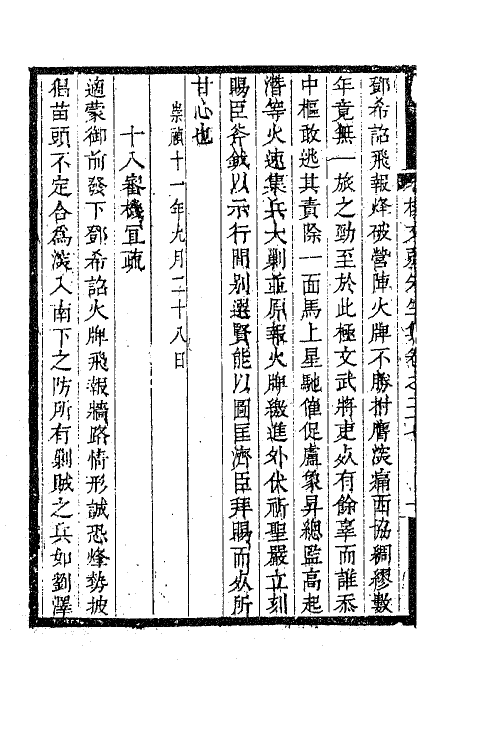 鄧希詔飛報烽破營陣火牌不勝拊膺淡痛西協綢繆數
年竟無一旅之勁至於此極文武將吏㱿有餘辜而誰忝
中樞敢逃其責除一面馬上星馳催促盧象昇總監高起
潛等火速集兵大剿並原報火牌繳進外伏祈聖嚴立刻
賜臣斧鉞以示行間別選賢能以圖匡濟臣拜賜而㱿所
甘心也
崇禎十一年九月二十八日
十八審機宜疏
適蒙御前發下鄧希詔火牌飛報牆路情形誠恐烽勢披
猖苗頭不定合為淡入南下之防所有剿賊之兵如劉澤